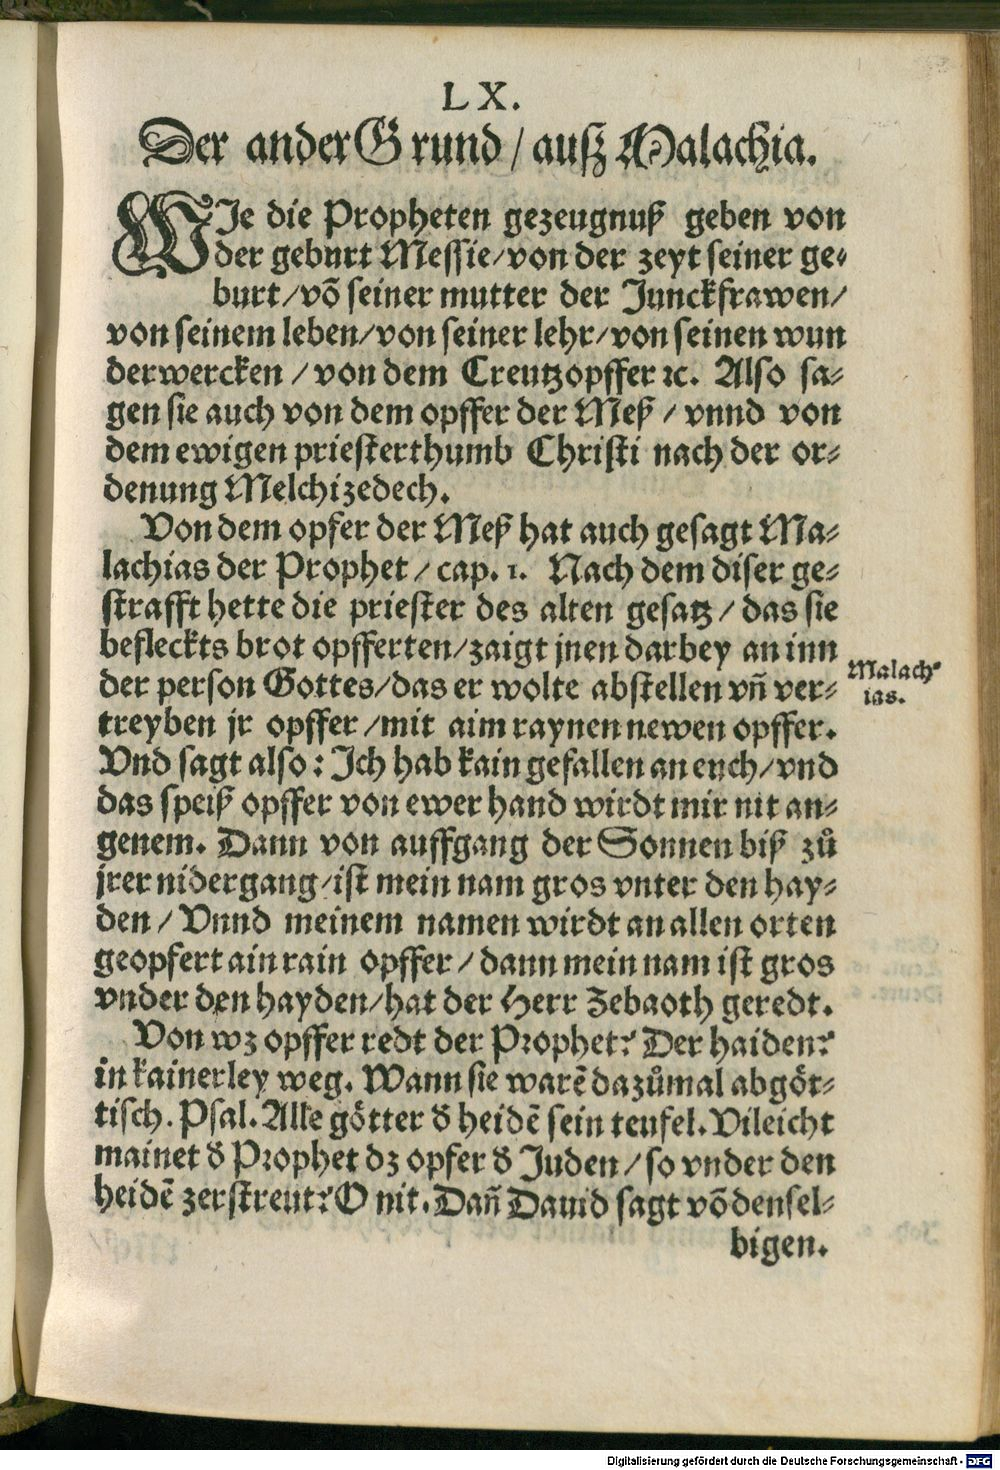 LX.
Der ander Grund / auß Malachia.
WJe die Propheten gezeugnuß geben von
der geburt Messie/von der zeyt seiner ge-
burt/võ seiner mutter der Junckfrawen/
von seinem leben/von seiner lehr/von seinen wun
derwercken / von dem Creutzopffer ꝛc. Also sa-
gen sie auch von dem opffer der Meß / vnnd von
dem ewigen priesterthumb Christi nach der or-
denung Melchizedech.
Von dem opfer der Meß hat auch gesagt Ma-
lachias der Prophet / cap. 1. Nach dem diser ge-
strafft hette die priester des alten gesatz / das sie
befleckts brot opfferten/zaigt jnen darbey an inn
der person Gottes/das er wolte abstellen vñ ver-
treyben jr opffer /mit aim raynen newen opffer.
Vnd sagt also: Ich hab kain gefallen an euch/vnd
das speiß opffer von ewer hand wirdt mir nit an-
genem. Dann von auffgang der Sonnen biß zů
jrer nidergang/ist mein nam gros vnter den hay-
den / Vnnd meinem namen wirdt an allen orten
geopfert ain rain opffer / dann mein nam ist gros
vnder den hayden/hat der Herr Zebaoth geredt.
Von wz opffer redt der Prophet? Der haiden?
in kainerley weg. Wann sie warẽ dazůmal abgöt-
tisch. Psal. Alle götter d̕ heidẽ sein teufel. Vileicht
mainet d̕ Prophet dz opfer d̕ Juden / so vnder den
heidẽ zerstreut? O nit. Dañ Dauid sagt võ densel-
bigen.
Malach-
ias.
Digitalisierung gefördert durch die Deutsche Forschungsgemeinschaft - DFG